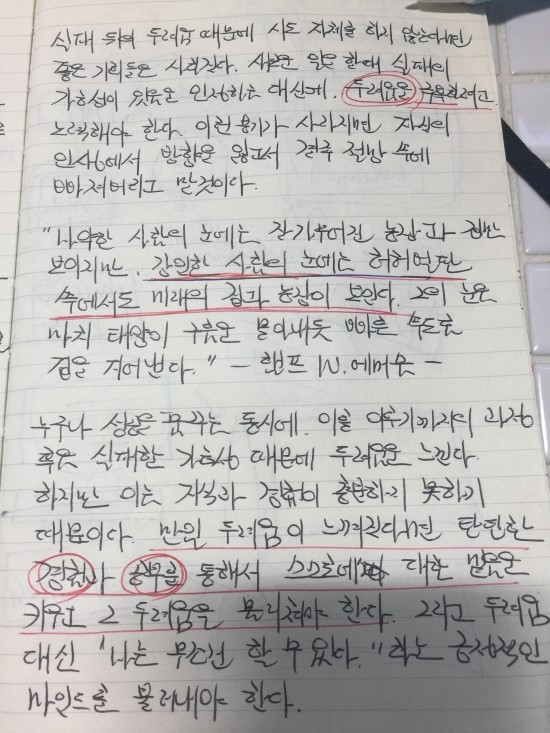 실패 뒤의 두려움 때문에 시도 자체를 하지 않는다면
좋은 기회들은 사라진다. 사람은 일을 할때 실패의
가능성이 있음을 인정하는 대신에, 두려움을 극복하려고
노력해야 한다. 이런 용기가 사라지면 자신의
인생에서 방향을 잃고서 결국 절망 속에
빠져버리고 말것이다.
"나약한 사람의 눈에는 잘 가꾸어진 농장과 집만
보이지만, 강인한 사람의 눈에는 허허벌판
속에서도 미래의 집과 농장이 보인다. 그의 눈은
마치 태양이 구름을 몰아내듯 빠른 속도로
집을 지어낸다." - 랠프 W.에머슨 -
누구나 성공을 꿈꾸는 동시에, 이를 이루기까지의 과정
혹은 실패할 가능성 때문에 두려움을 느낀다.
하지만 이는 지식과 경험이 충분하지 못하기
때문이다. 만일 두려움이 느껴진다면 탄탄한
경험과 공부를 통해서 스스로에 대한 믿음을
키우고 그 두려움을 물리쳐야 한다. 그리고 두려움
대신 "나는 무조건 할 수 있다." 하는 긍정적인
마인드를 불러내야 한다.